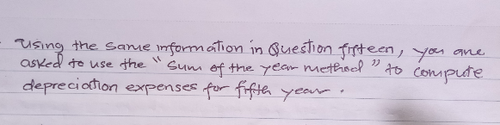 Using the same information in Question fifteen, you are
asked to use the "Sum of the year method" to compute
depreciation expenses for fifth year.